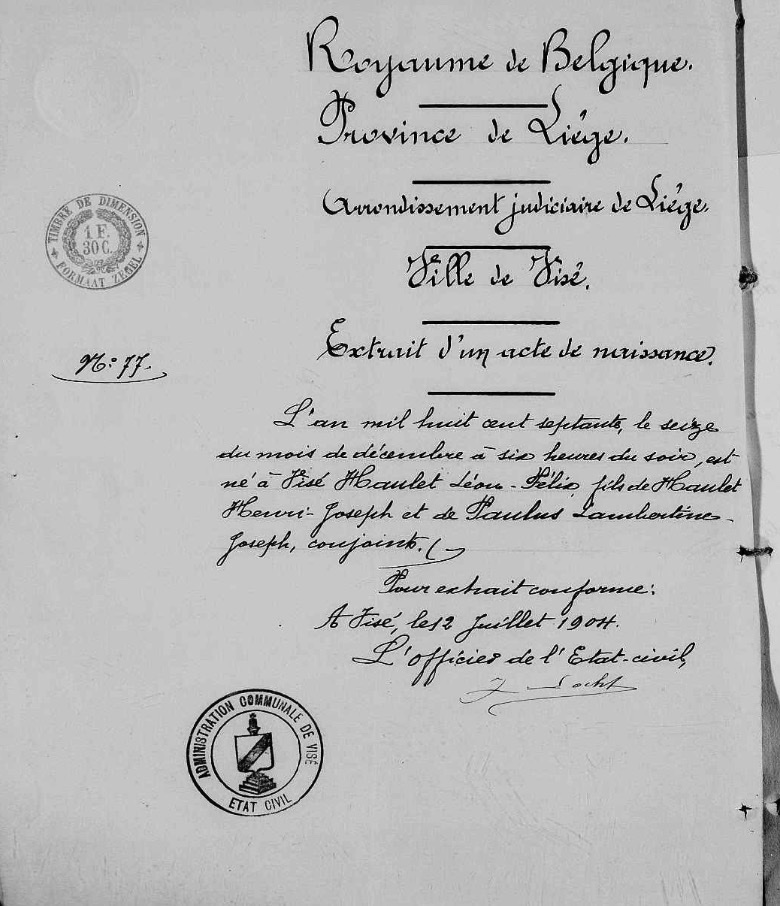 Royaume de Belgique.
Province de Liége.
Arrondissement judiciaire de Liége.
Ville de Visé.
Extrait d'un acte de naissance.
TIMBRE DE DIMENSION
1 F.
30 C.
FORMAAT ZEGEL
No: 77.
L'an mil huit cent septante, le seize
du mois de décembre à six heures du soir, est
né à Visé Haulet Léon-Félix, fils de Haulet
Henri-Joseph et de Paulus Lambertine-
Joseph, conjoints.
Pour extrait conforme:
A Visé, le 12 Juillet 1904.
L'officier de l'Etat-civil,
ADMINISTRATION COMMUNALE DE VISÉ
ETAT CIVIL